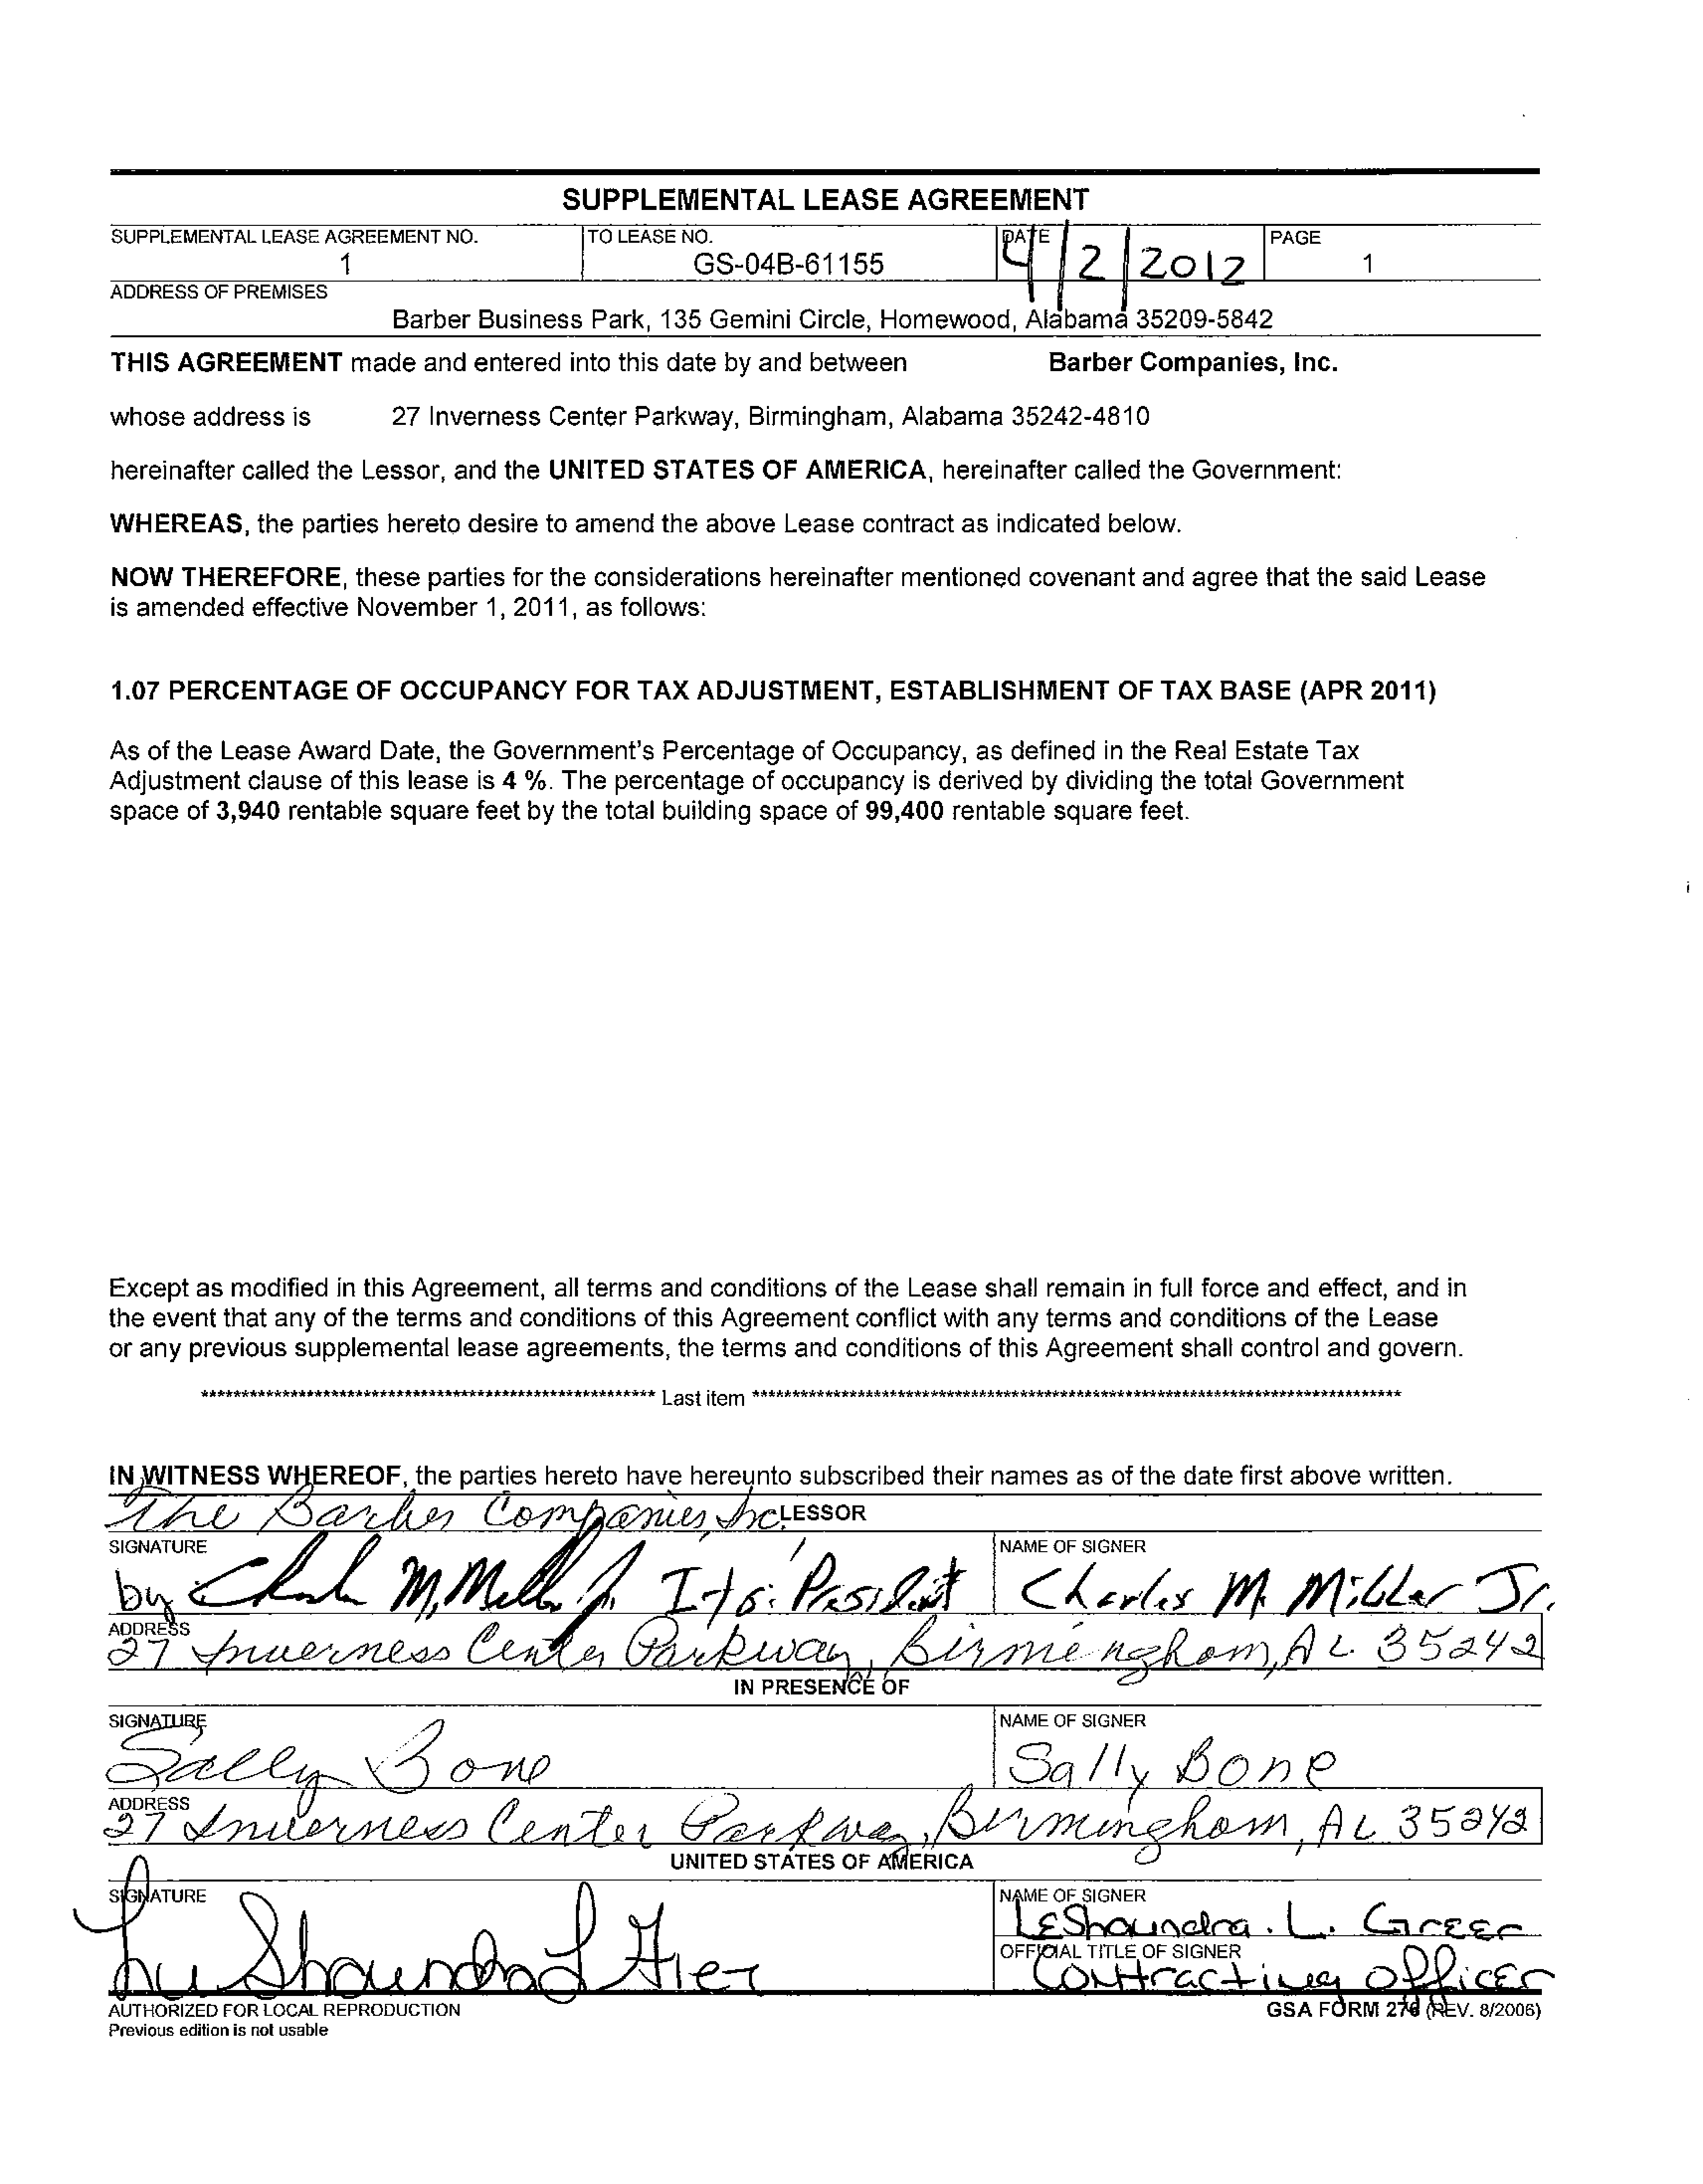 SUPPLEMENTAL LEASE AGREEMENT
SUPPLEMENTAL LEASE AGREEMENT NO. TO LEASE NO. DATE PAGE
1 GS-04B-61155 4/2/2012 1
ADDRESS OF PREMISES
Barber Business Park, 135 Gemini Circle, Homewood, Alabama 35209-5842
THIS AGREEMENT made and entered into this date by and between Barber Companies, Inc.
whose address is 27 Inverness Center Parkway, Birmingham, Alabama 35242-4810
hereinafter called the Lessor, and the UNITED STATES OF AMERICA, hereinafter called the Government:
WHEREAS, the parties hereto desire to amend the above Lease contract as indicated below.
NOW THEREFORE, these parties for the considerations hereinafter mentioned covenant and agree that the said Lease
is amended effective November 1, 2011, as follows:
1.07 PERCENTAGE OF OCCUPANCY FOR TAX ADJUSTMENT, ESTABLISHMENT OF TAX BASE (APR 2011)
As of the Lease Award Date, the Government's Percentage of Occupancy, as defined in the Real Estate Tax
Adjustment clause of this lease is 4 %. The percentage of occupancy is derived by dividing the total Government
space of 3,940 rentable square feet by the total building space of 99,400 rentable square feet.
Except as modified in this Agreement, all terms and conditions of the Lease shall remain in full force and effect, and in
the event that any of the terms and conditions of this Agreement conflict with any terms and conditions of the Lease
or any previous supplemental lease agreements, the terms and conditions of this Agreement shall control and govern.
******************************************************** Last item ********************************************************************************
IN WITNESS WHEREOF, the parties hereto have hereunto subscribed their names as of the date first above written.
The Barber Companies, Inc. LESSOR
SIGNATURE NAME OF SIGNER
by Charles M. Miller Jr. Its: President Charles M. Miller Jr.
ADDRESS
27 Inverness Center Parkway, Birmingham, AL 35242
IN PRESENCE OF
SIGNATURE NAME OF SIGNER
Sally Bone Sally Bone
ADDRESS
27 Inverness Center Parkway, Birmingham, AL 35242
UNITED STATES OF AMERICA
SIGNATURE NAME OF SIGNER
LeShaundra. L. Greer
OFFICIAL TITLE OF SIGNER
Contracting Officer
AUTHORIZED FOR LOCAL REPRODUCTION GSA FORM 276 (REV. 8/2006)
Previous edition is not usable